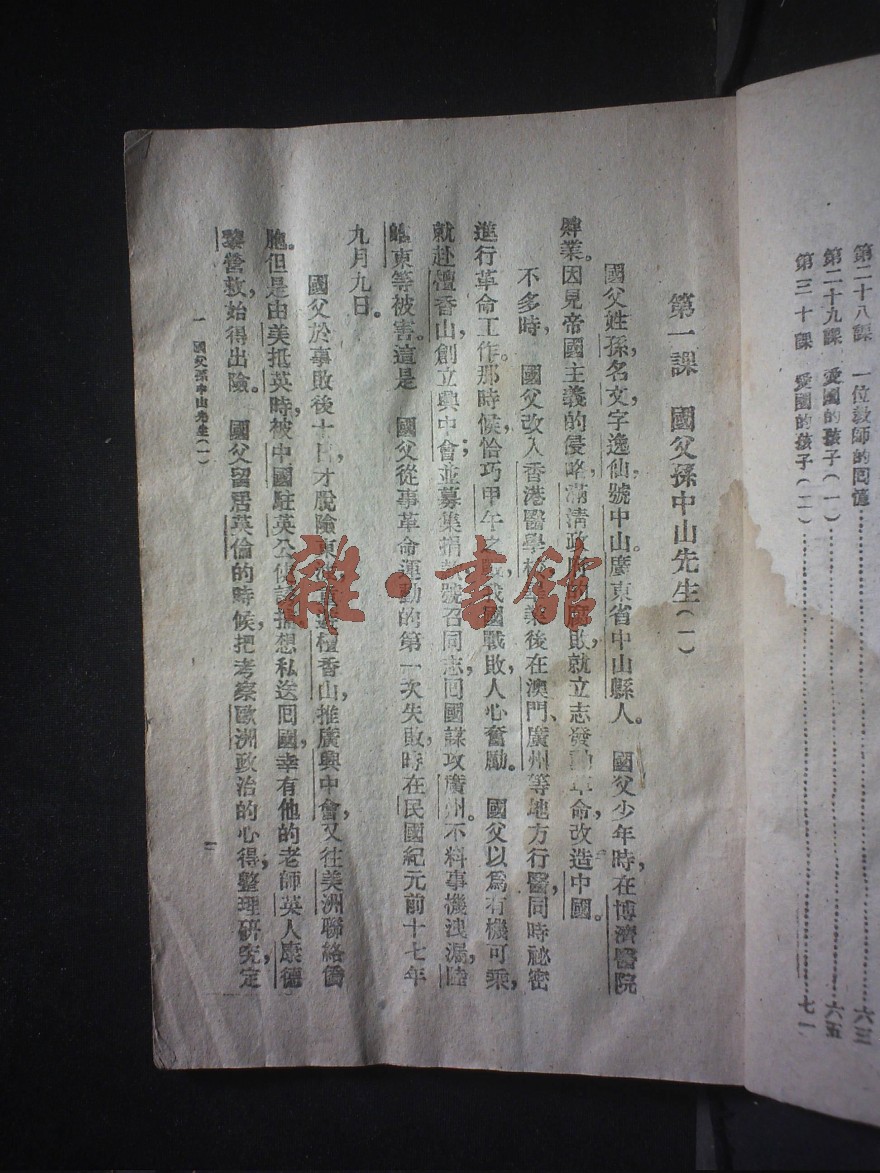 第二十八課　一位教師的回憶…………六三
第二十九課　愛國的孩子(一)…………六五
第三十課　愛國的孩子(二)…………七一
第一課　國父孫中山先生(一)
國父姓孫，名文，字逸仙，號中山，廣東省中山縣人。　國父少年時，在博濟醫院
肄業。因見帝國主義的侵略，滿清政府的腐敗，就立志發動革命，改造中國。
不多時，　國父改入香港醫學校，畢業後在澳門、廣州等地方行醫，同時祕密
進行革命工作。那時候，恰巧甲午之戰，我國戰敗，人心奮勵。　國父以爲有機可乘，
就赴檀香山創立興中會；並募集捐款，號召同志，回國謀攻廣州。不料事機洩漏，陸
皓東等被害。這是　國父從事革命運動的第一次失敗，時在民國紀元前十七年
九月九日。
國父於事敗後十日，才脫險東渡，重遊檀香山，推廣興中會，又往美洲聯絡僑
胞。但是由美抵英時，被中國駐英公使誘捕，想私送回國，幸有他的老師英人康德
黎營救，始得出險。　國父留居英倫的時候，把考察歐洲政治的心得，整理研究，定
一　國父孫中山先生(一)
一
雜·書館